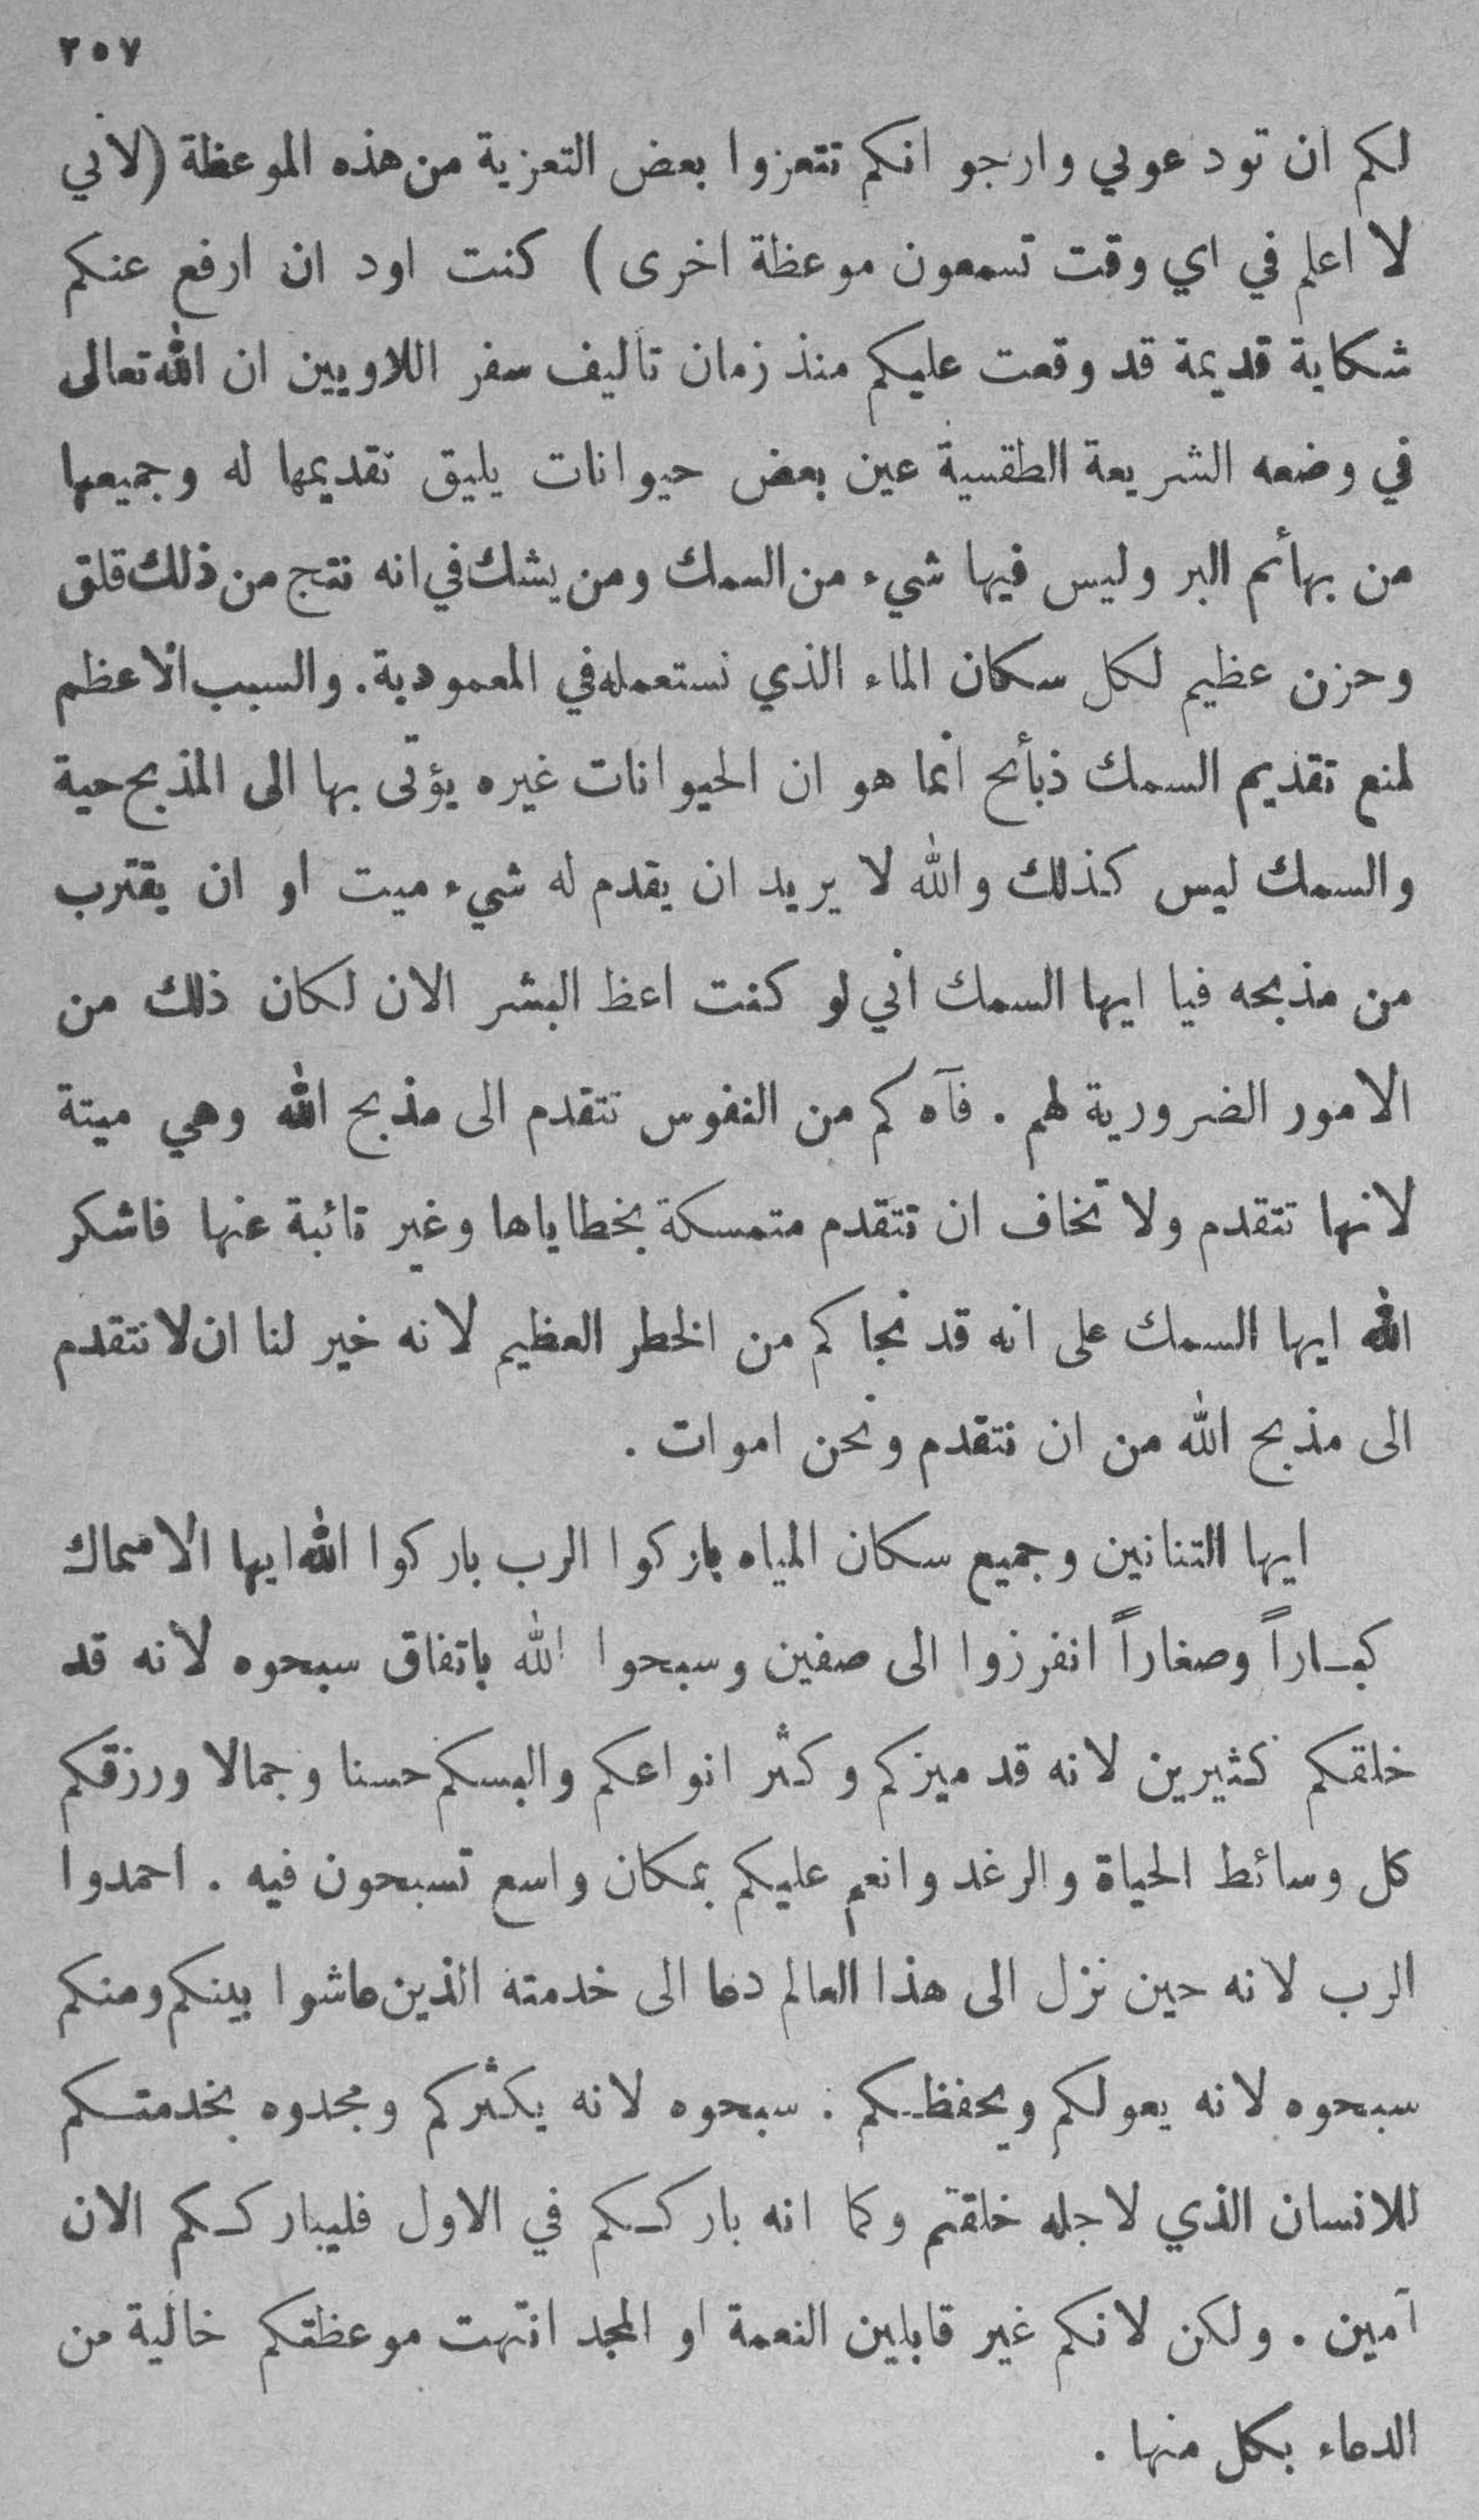 ٢٥٧
لكم ان تود عوني وارجو انكم تتعزوا بعض التعزية من هذه الموعظة (لاني
لا اعلم في اي وقت تسمعون موعظة اخرى) كنت اود ان ارفع عنكم
شكاية قديمة قد وقعت عليكم منذ زمان تأليف سفر اللاويين ان الله تعالى
في وضعه الشريعة الطقسية عين بعض حيوانات يليق تقديمها له وجميعها
من بهائم البر وليس فيها شيء من السمك ومن يشك في انه نتج من ذلك قلق
وحزن عظيم لكل سكان الماء الذي نستعمله في المعمودية. والسبب الاعظم
لمنع تقديم السمك ذبائح انما هو ان الحيوانات غيره يؤتى بها الى المذبح حية
والسمك ليس كذلك والله لا يريد ان يقدم له شيء ميت او ان يقترب
من مذبحه فيا ايها السمك اني لو كنت اعظ البشر الان لكان ذلك من
الامور الضرورية لهم. فآه كم من النفوس تتقدم الى مذبح الله وهي ميتة
لانها تتقدم ولا تخاف ان تتقدم متمسكة بخطاياها وغير تائبة عنها فاشكر
الله ايها السمك على انه قد نجاكم من الخطر العظيم لانه خير لنا ان لا نتقدم
الى مذبح الله من ان نتقدم ونحن اموات.
ايها التنانين وجميع سكان المياه باركوا الرب باركوا الله ايها الاسماك
كبـاراً وصغاراً انفرزوا الى صفين وسبحوا الله باتفاق سبحوه لانه قد
خلقكم كثيرين لانه قد ميزكم وكثر انواعكم والبسكم حسنا وجمالا ورزقكم
كل وسائط الحياة والرغد وانعم عليكم بمكان واسع تسبحون فيه. احمدوا
الرب لانه حين نزل الى هذا العالم دعا الى خدمته الذين عاشوا بينكم ومنكم
سبحوه لانه يعولكم ويحفظـكم: سبحوه لانه يكثركم ومجدوه بخدمتـكم
للانسان الذي لاجله خلقتم وكما انه باركـكم في الاول فليباركـكم الان
آمين. ولكن لانكم غير قابلين النعمة او المجد انتهت موعظتكم خالية من
الدعاء بكل منها.